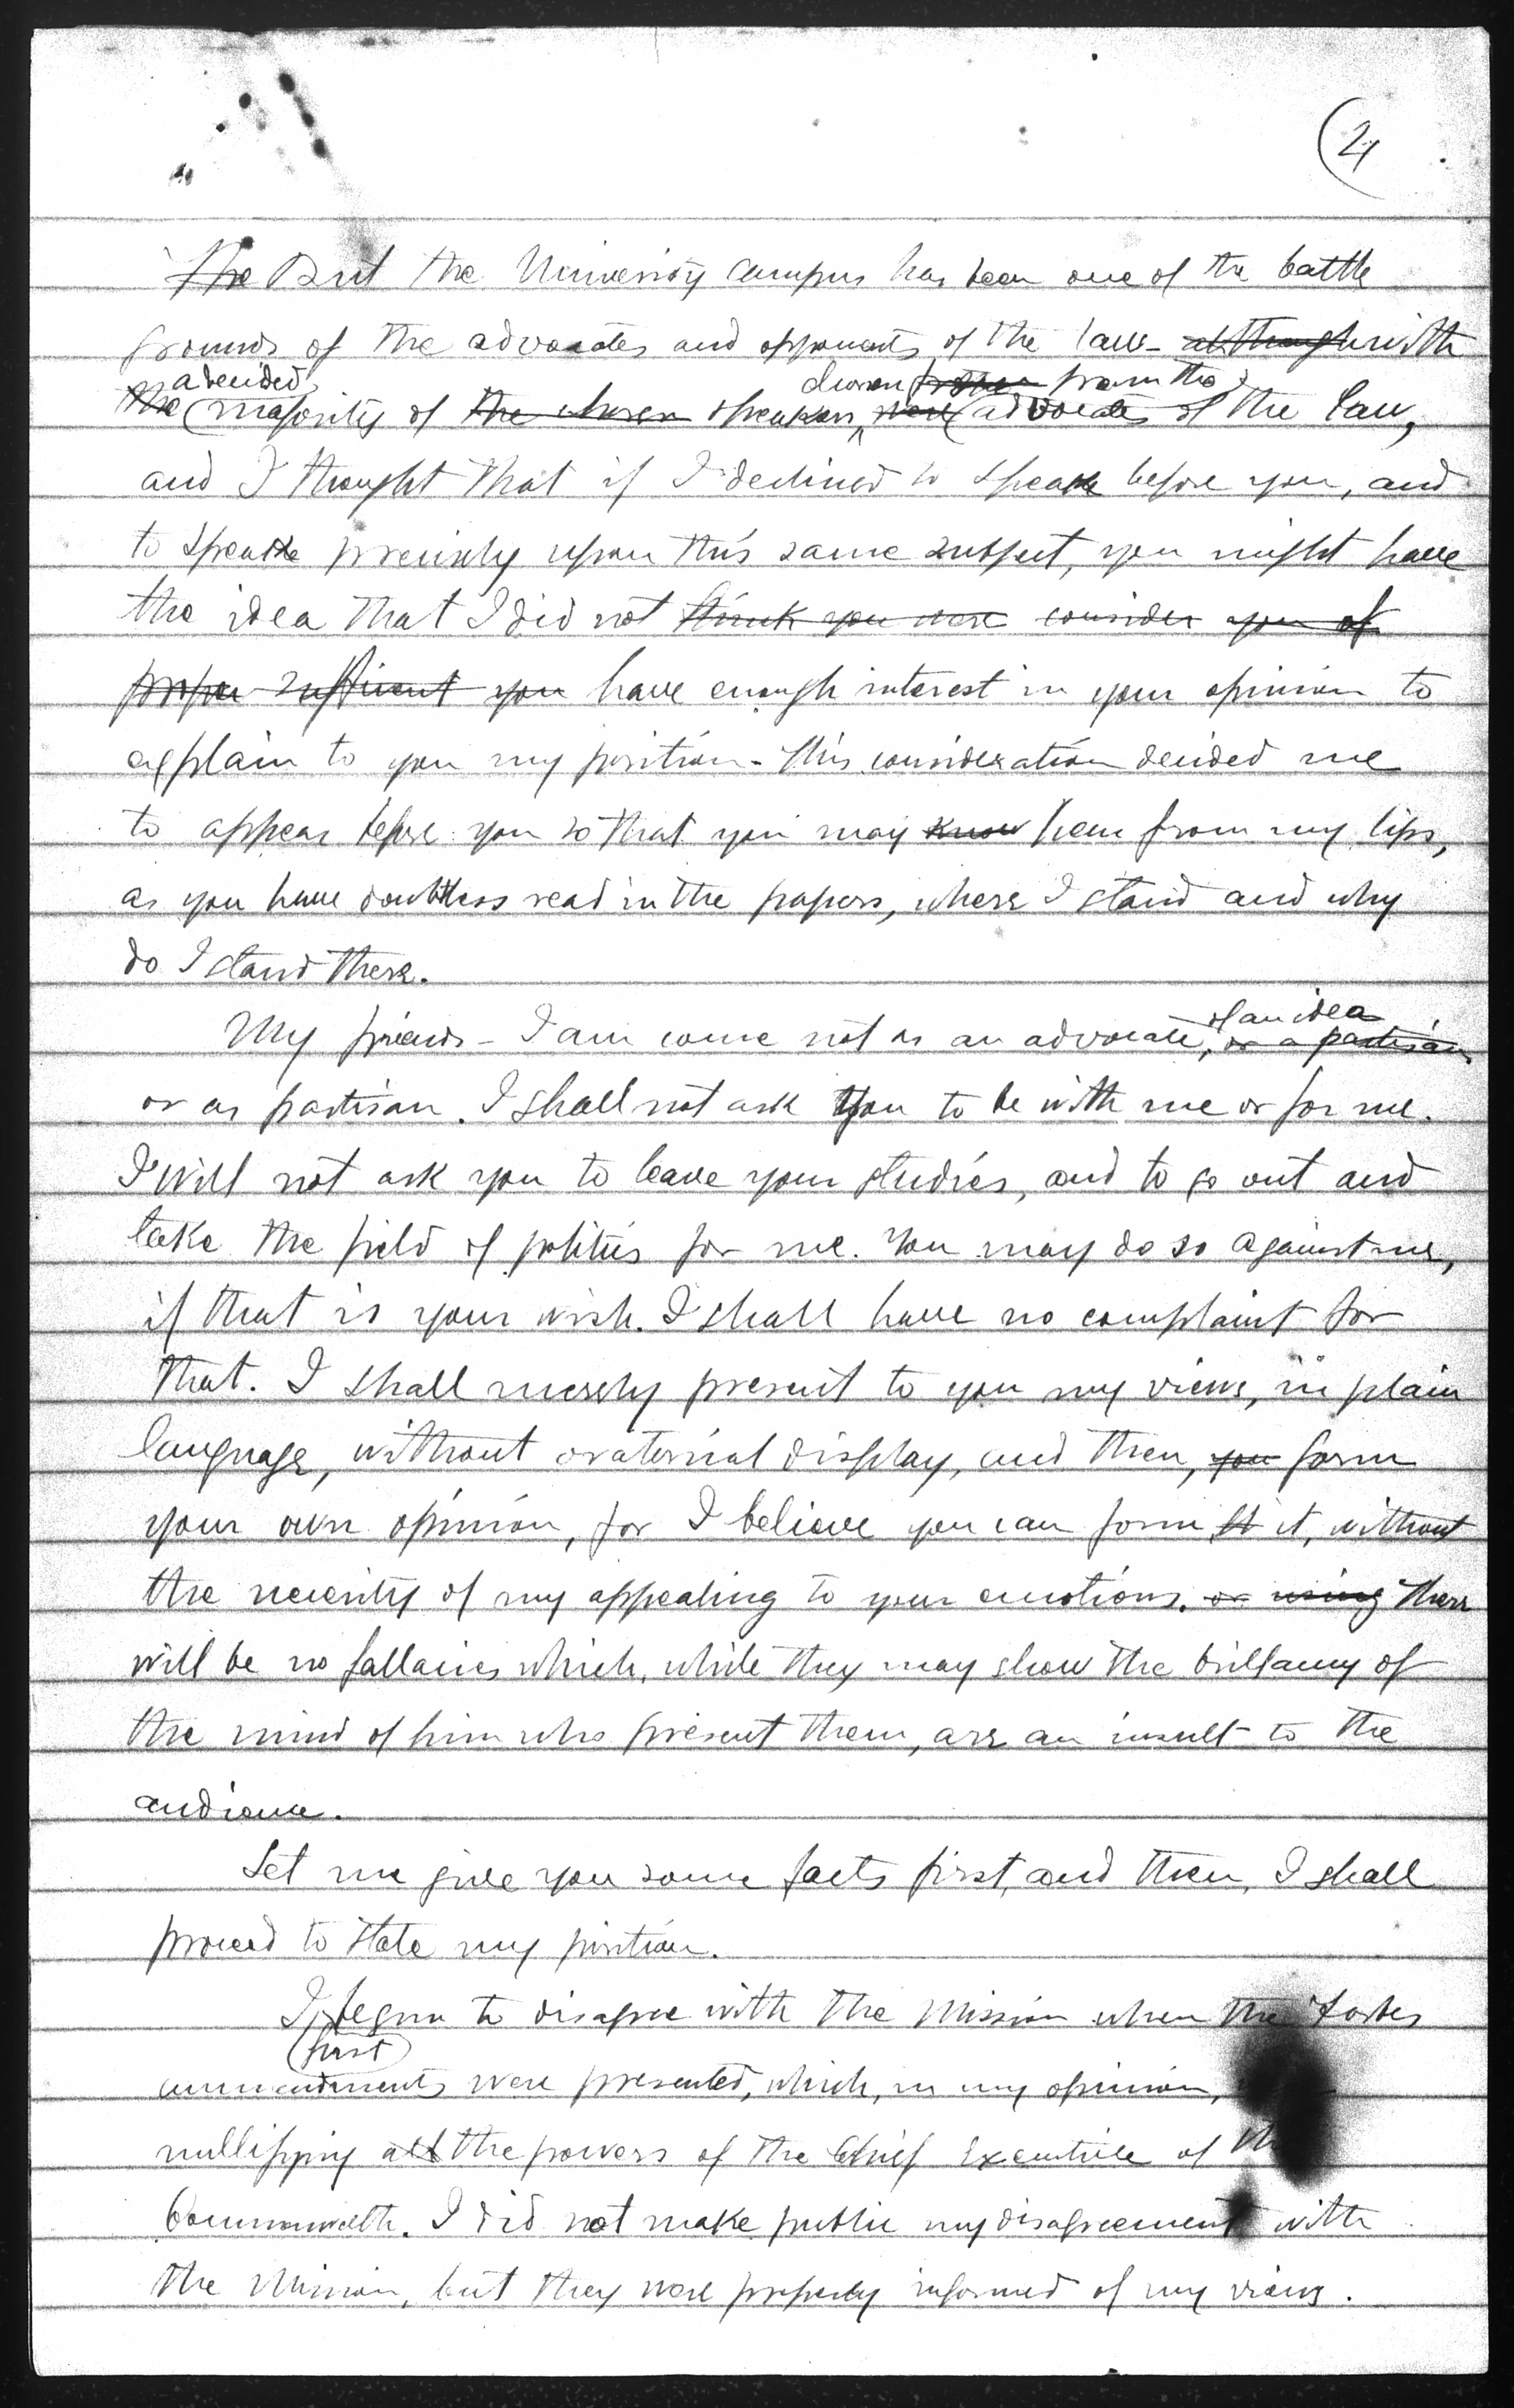 (2)
The But the University campus has been one of the battle
grounds of the advocates and opponents of the law - although with
the a decided majority of the chosen speakers, chosen from the were advocates of the law,
and I thought that if I declined to speak before you, and
to speak precisely upon this same subject, you might have
the idea that I did not think you were consider you of
proper sufficient you have enough interest in your opinion to
explain to you my position - this consideration decided me
to appear before you so that you may know hear from my lips,
as you have doubtless read in the papers, where I stand and why
do I stand there.
My friends - I am come not as an advocate, of an idea or a partisan
or as partisan. I shall not ask you to be with me or for me.
I will not ask you to leave your studies, and to go out and
take the field of politics for me. You may do so against me,
if that is your wish. I shall have no complaint for
that. I shall merely present to you my views, in plain
language, without oratorical display, and then, you form
your own opinion, for I believe you can form it, without
the necessity of my appealing to your emotions. or using There
will be no fallacies which, while they may show the brillancy of
the mind of him who present them, are an insult to the
audience.
Let me give you some facts first, and then, I shall
proceed to state my position.
I first begun to disagree with the Mission when the Forbes
ammendments were presented, which, in my opinion,
nullifying all the powers of the Chief Executive of the
Commonwelth. I did not make public my disagreement with
the Mission, but they were properly informed of my views.